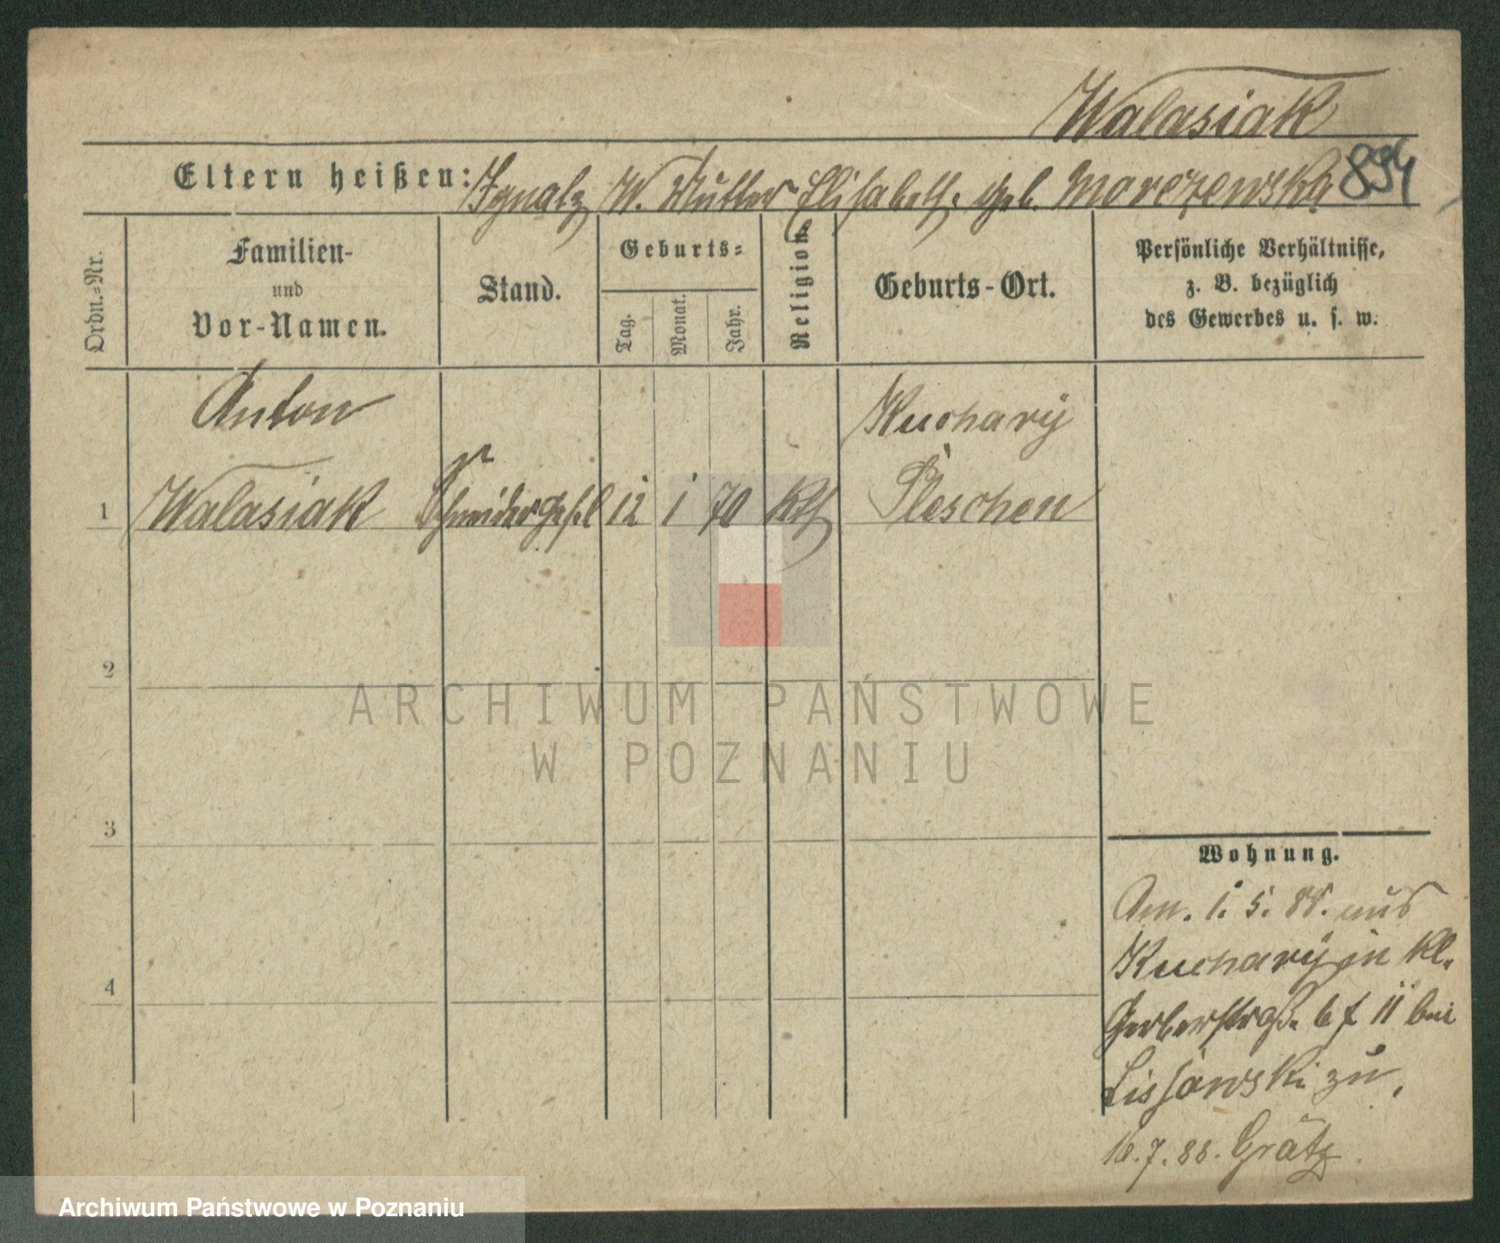 Walasiak
894
Eltern heißen: Ignatz W. Mutter Elisabeth geb. Morczewska
Ordn.-Nr.
Familien-
und
Vor-Namen.
Stand.
Geburts-
Tag.
Monat.
Jahr.
Religion.
Geburts-Ort.
Persönliche Verhältnisse,
z. B. bezüglich
des Gewerbes u. s. w.
Anton Kuchary
1 Walasiak Schneidergesel 12 1 70 Kth Pleschen
2
3
4
Wohnung.
Am. 1. 5. 88. aus
Kuchary in Kl.
Gerberstraß. 6 f II bei
Lissowski zu,
16. 7. 88. Grätz
ARCHIWUM PAŃSTWOWE
W POZNANIU
Archiwum Państwowe w Poznaniu